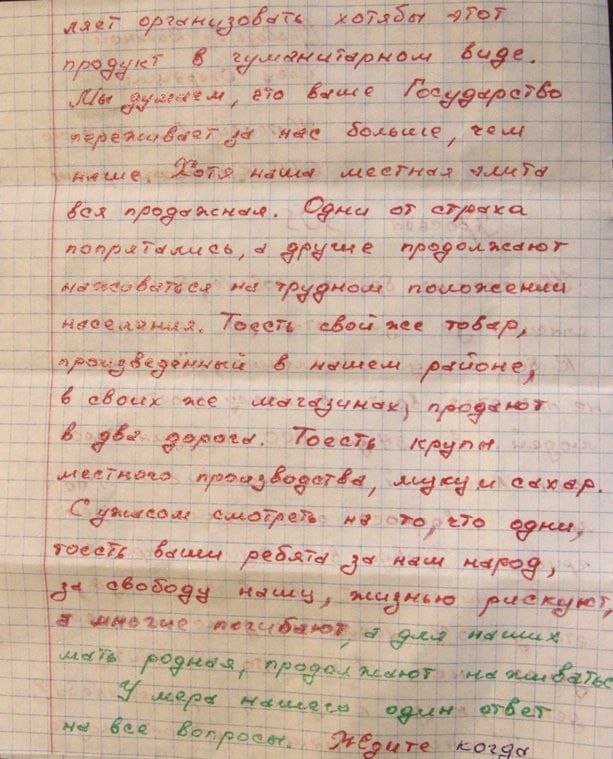 ляет организовать хотябы этот
продукт в гуманитарном виде.
Мы думаем, что ваше Государство
переживает за нас больше, чем
наше. Хотя наша местная элита
вся продажная. Одни от страха
попрятались, а другие продолжают
наживаться на трудном положении
населения. Тоесть свой же товар,
произведённый в нашем районе,
в своих же магазинах, продают
в два дорога. Тоесть крупы
местного производства, муку и сахар.
С ужасом смотреть на то, что одни,
тоесть ваши ребята за наш народ,
за свободу нашу, жизнью рискуют,
а многие погибают, а для наших
мать родная, продолжают наживатьс
У мера нашего один ответ
на все вопросы. Ждите когда